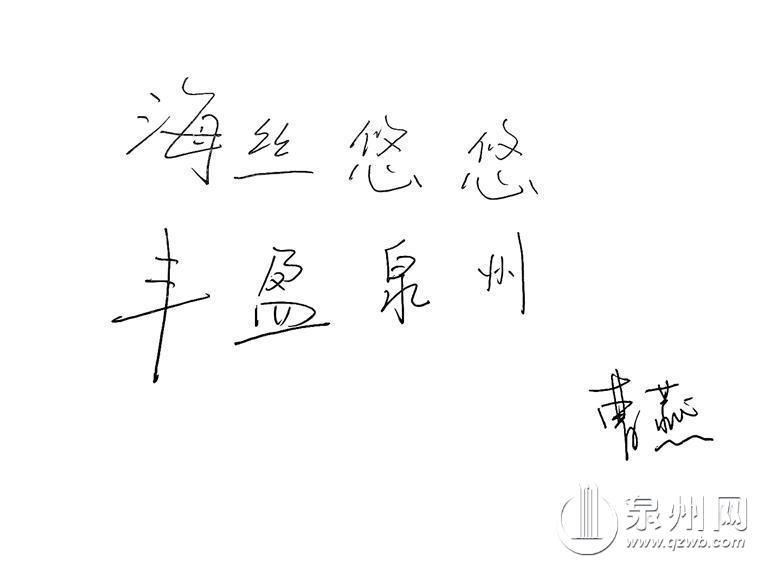 海丝悠悠
丰盈泉州
曹燕
泉州网
www.qzwb.com